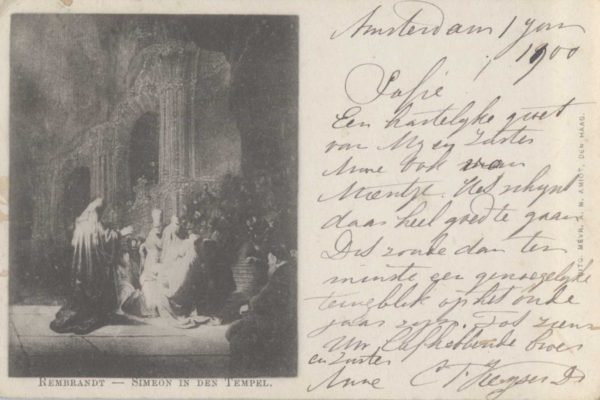 Amsterdam 1 Jan
1900
Sofie!
Een hartelijke groet
van My en Zuster
Anne ook van
Mientje. Het schijnt
daar heel goed te gaan
Dit zoude dan ten
minste een genoegelijke
terugblik op het oude
jaar zijn. Tot ziens
Uw Liefhebbende broer
en Zuster
Anne
REMBRANDT — SIMEON IN DEN TEMPEL.
DEN HAAG.